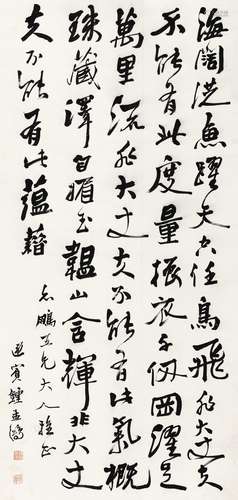 海闊從魚躍天空任鳥飛非大丈夫
不能有此度量振衣千仞岡濯足
萬里流非大丈夫不能有此氣概
珠藏澤自媚玉韞山含輝非大丈
夫不能有此蘊藉
鵬五兄大人雅正
遇賓鍾孟鴻